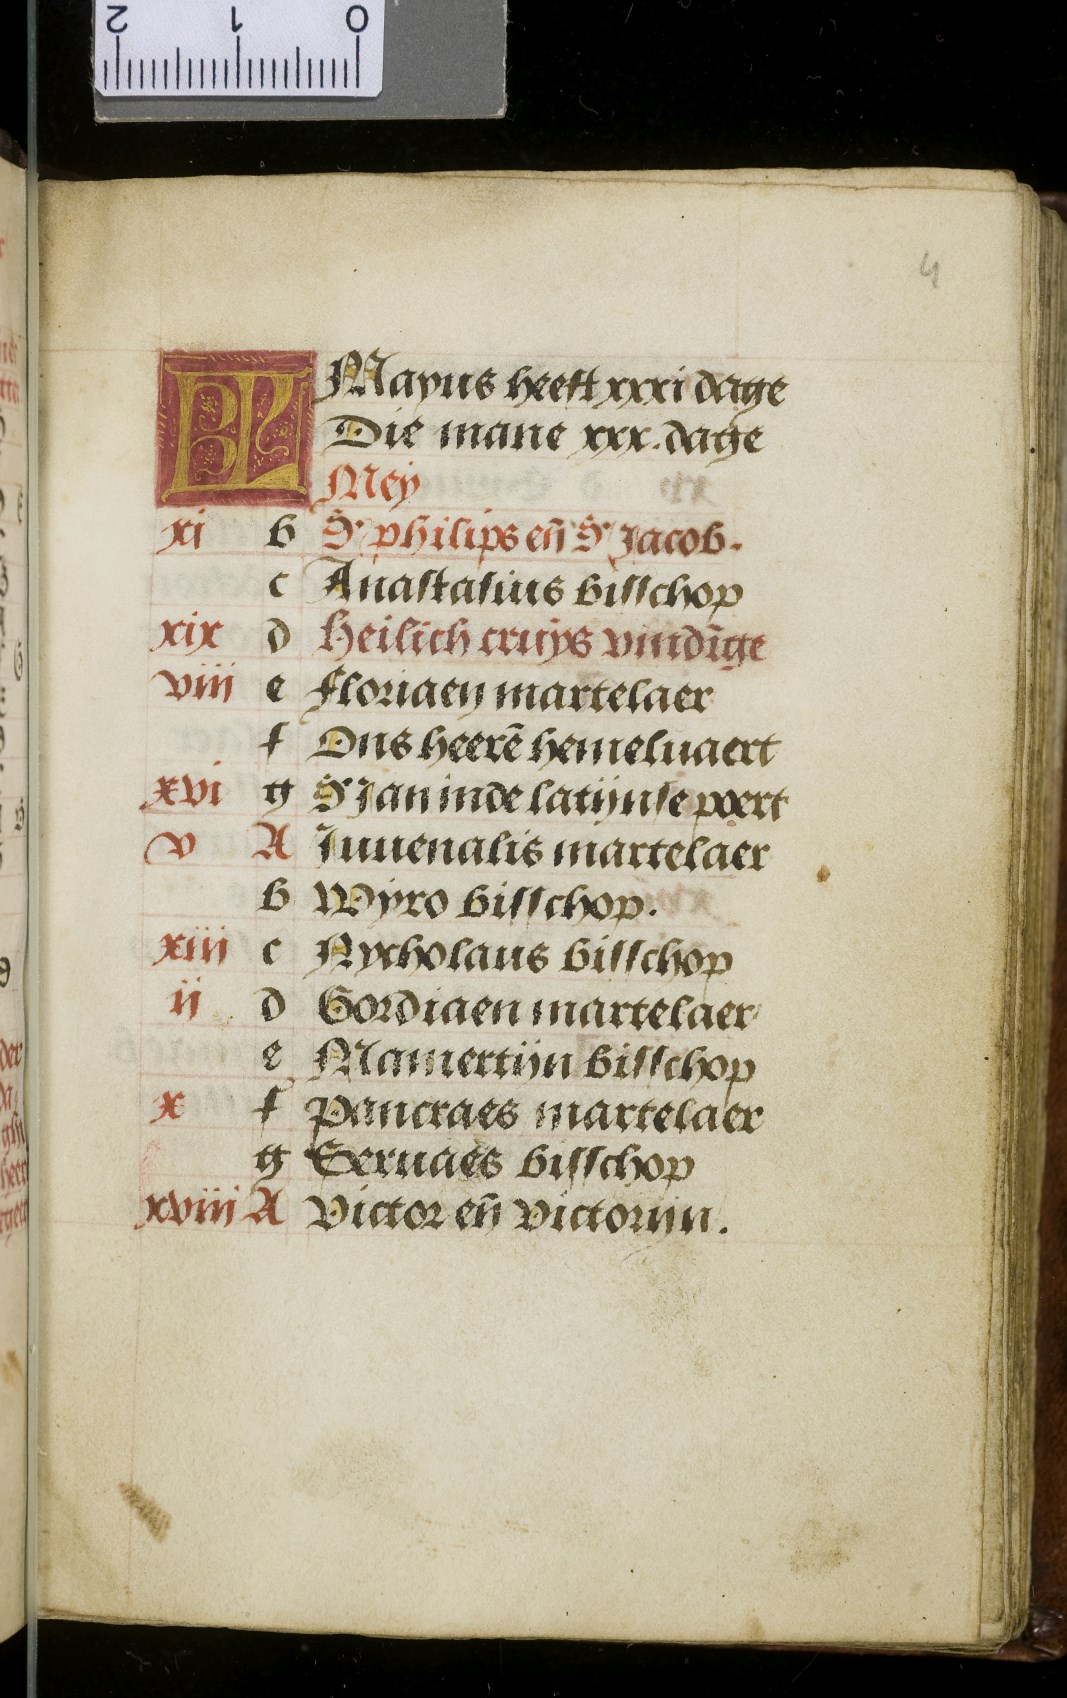 2 1 0
4
KL Mayus heeft xxxi dage
Die mane xxx. dage
Mey
xi b S' philips en̄ S' Jacob.
c Anastasius bisschop
xix d Heilich cruys vindīge
viii e Floriaen martelaer
f Ons heerē hemelvaert
xvi g S' Jan inde latijnse poert
v A Juuenalis martelaer
b Wyro bisschop.
xiii c Nycholaus bisschop
ii d Gordiaen martelaer
e Mamertijn bisschop
x f Pancraes martelaer
g Seruaes bisschop
xviii A Victor en̄ Victorijn.